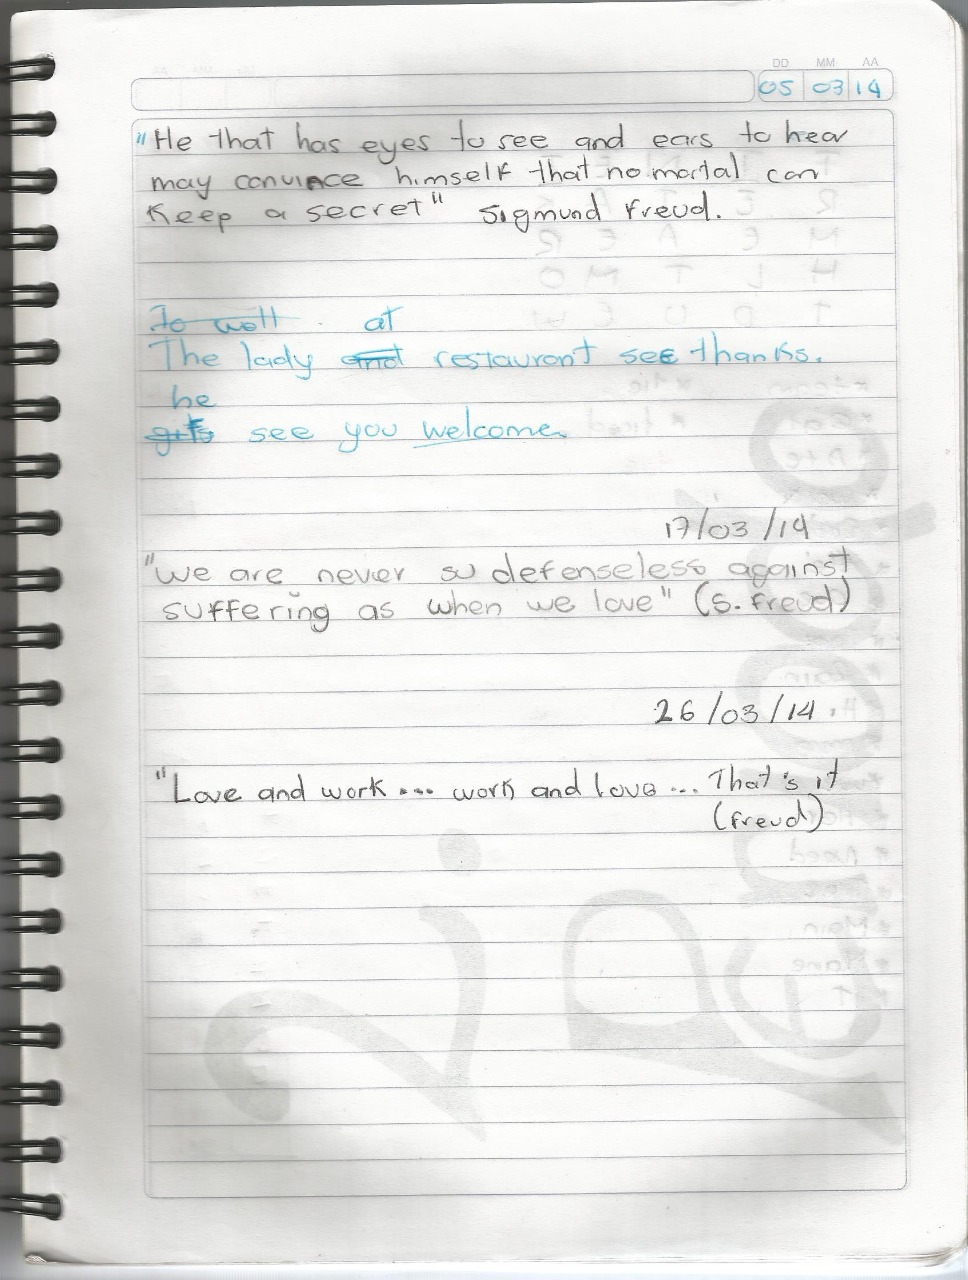 DD MM AA
05 03 14
"He that has eyes to see and ears to hear
may convince himself that no mortal can
keep a secret" Sigmund Freud.
at
The lady and restaurant see thanks.
he
see you welcome.
17/03/14
"We are never so defenseless against
suffering as when we love" (S. Freud)
26/03/14
"Love and work ... work and love ... That's it
(Freud)